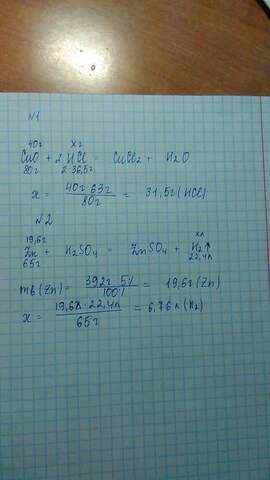 N1
40г xг
CuO + 2 HCl = CuCl2 + H2O
80г 2·36,5г
x = 40г·63г / 80г = 31,5г (HCl)
N2
19,6г xл
Zn + H2SO4 = ZnSO4 + H2↑
65г 22,4л
mв (Zn) = 392г·5% / 100% = 19,6г (Zn)
x = 19,6г·22,4л / 65г = 6,76л (H2)